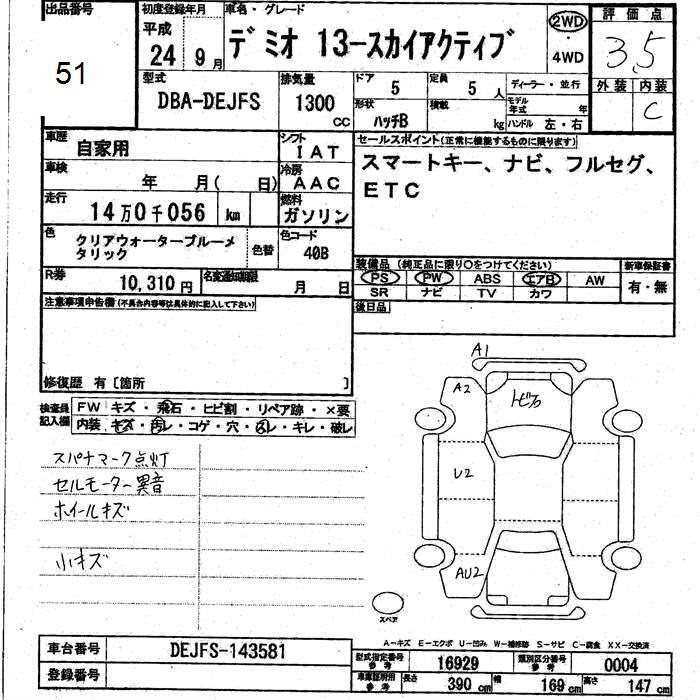 出品番号
51
初度登録年月
平成
24 9 月
車名・グレード
デミオ 13-スカイアクティブ
2WD
・
4WD
評価点
3.5
外装 内装
C
型式
DBA-DEJFS
排気量
1300
CC
ドア
5
定員
5 人
形状
ハッチB
積載
kg
ディーラー・並行
モデル年式 年
ハンドル 左・右
車歴
自家用
シフト
IAT
車検
年 月( 日)
冷房
AAC
走行
14万0千056 km
燃料
ガソリン
色
クリアウォーターブルーメ
タリック
色替
色コード
40B
R券
10,310 円
名変通知期限
月 日
セールスポイント(正常に機能するものに限ります)
スマートキー、ナビ、フルセグ、
ETC
装備品(純正品に限り○をつけてください)
PS PW ABS エアB AW
SR ナビ TV カワ
新車保証書
有・無
後日品
注意事項申告欄(不具合内容等は具体的に記入して下さい)
修復歴 有〔箇所 〕
検査員
記入欄
FW キズ・飛石・ヒビ割・リペア跡・×要
内装 キズ・汚レ・コゲ・穴・スレ・キレ・破レ
スパナマーク点灯
セルモーター異音
ホイールキズ
小キズ
A1
A2
トビ石
U2
AU2
スペア
A-キズ E-エクボ U-凹み W-補修跡 S-サビ C-腐食 XX-交換済
車台番号
DEJFS-143581
登録番号
型式指定番号
参考
16929
類別区分番号
参考
0004
車庫証明用
参考
長さ
390 cm
幅
169 cm
高さ
147 cm